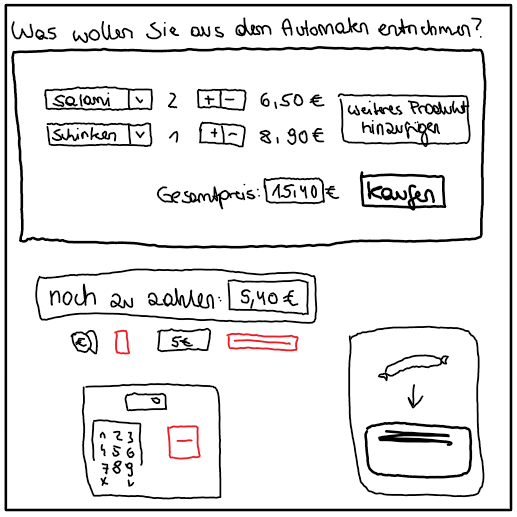 Was wollen Sie aus dem Automaten entnehmen?
Salami v 2 + - 6,50 €
Schinken v 1 + - 8,90 €
weiteres Produkt
hinzufügen
Gesamtpreis: 15,40 € kaufen
noch zu zahlen: 5,40 €
€ 5€
0
1 2 3
4 5 6
7 8 9
x v